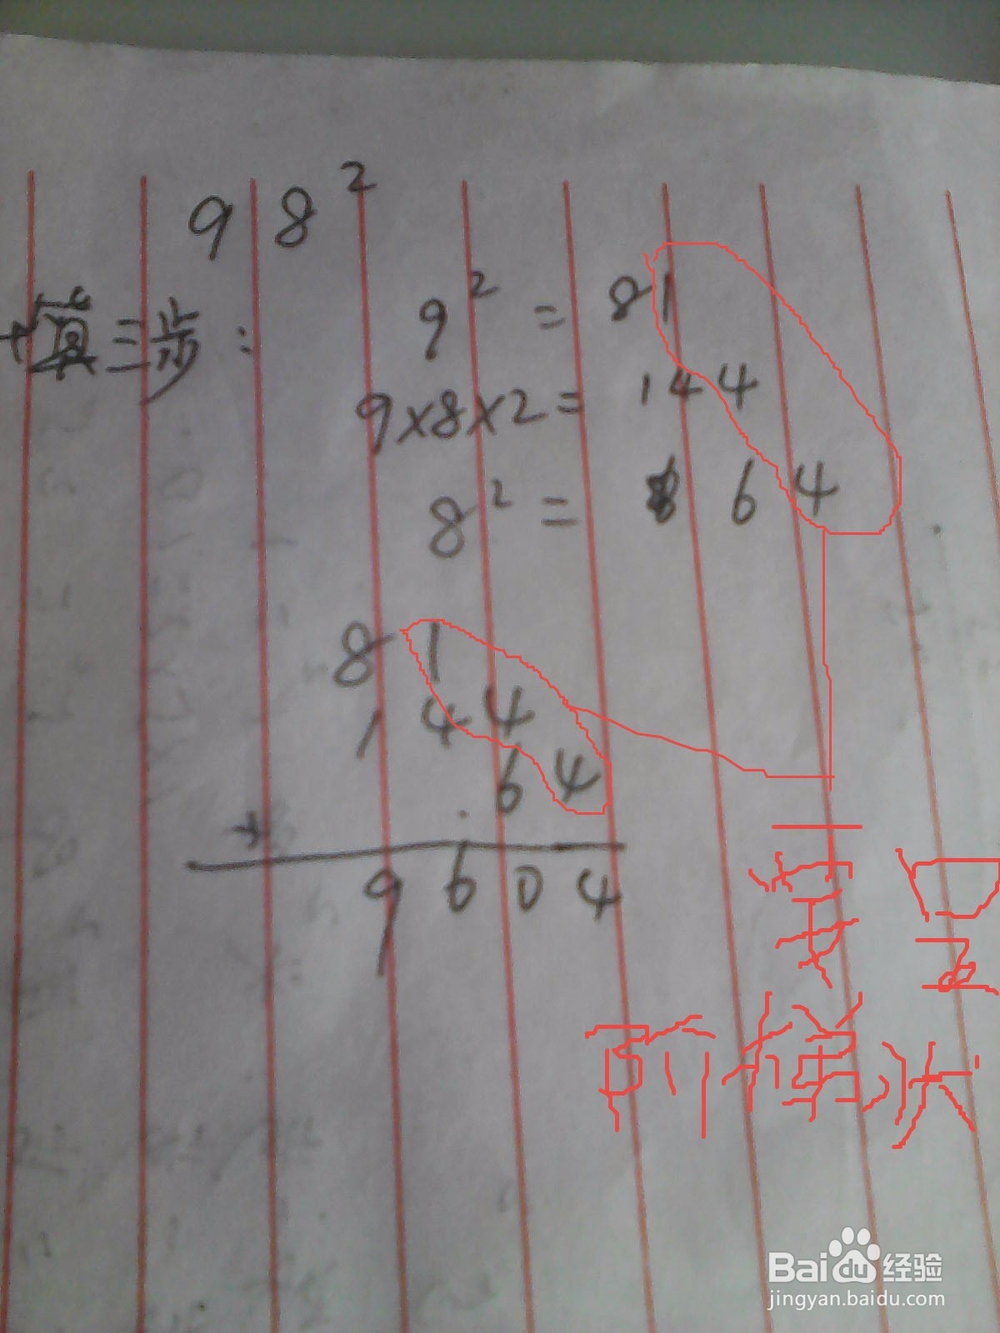 98²
计算三步：
9² = 81
9×8×2= 144
8² = 64
81
144
64
+
9604
要呈
阶梯状
Baidu经验
jingyan.baidu.com